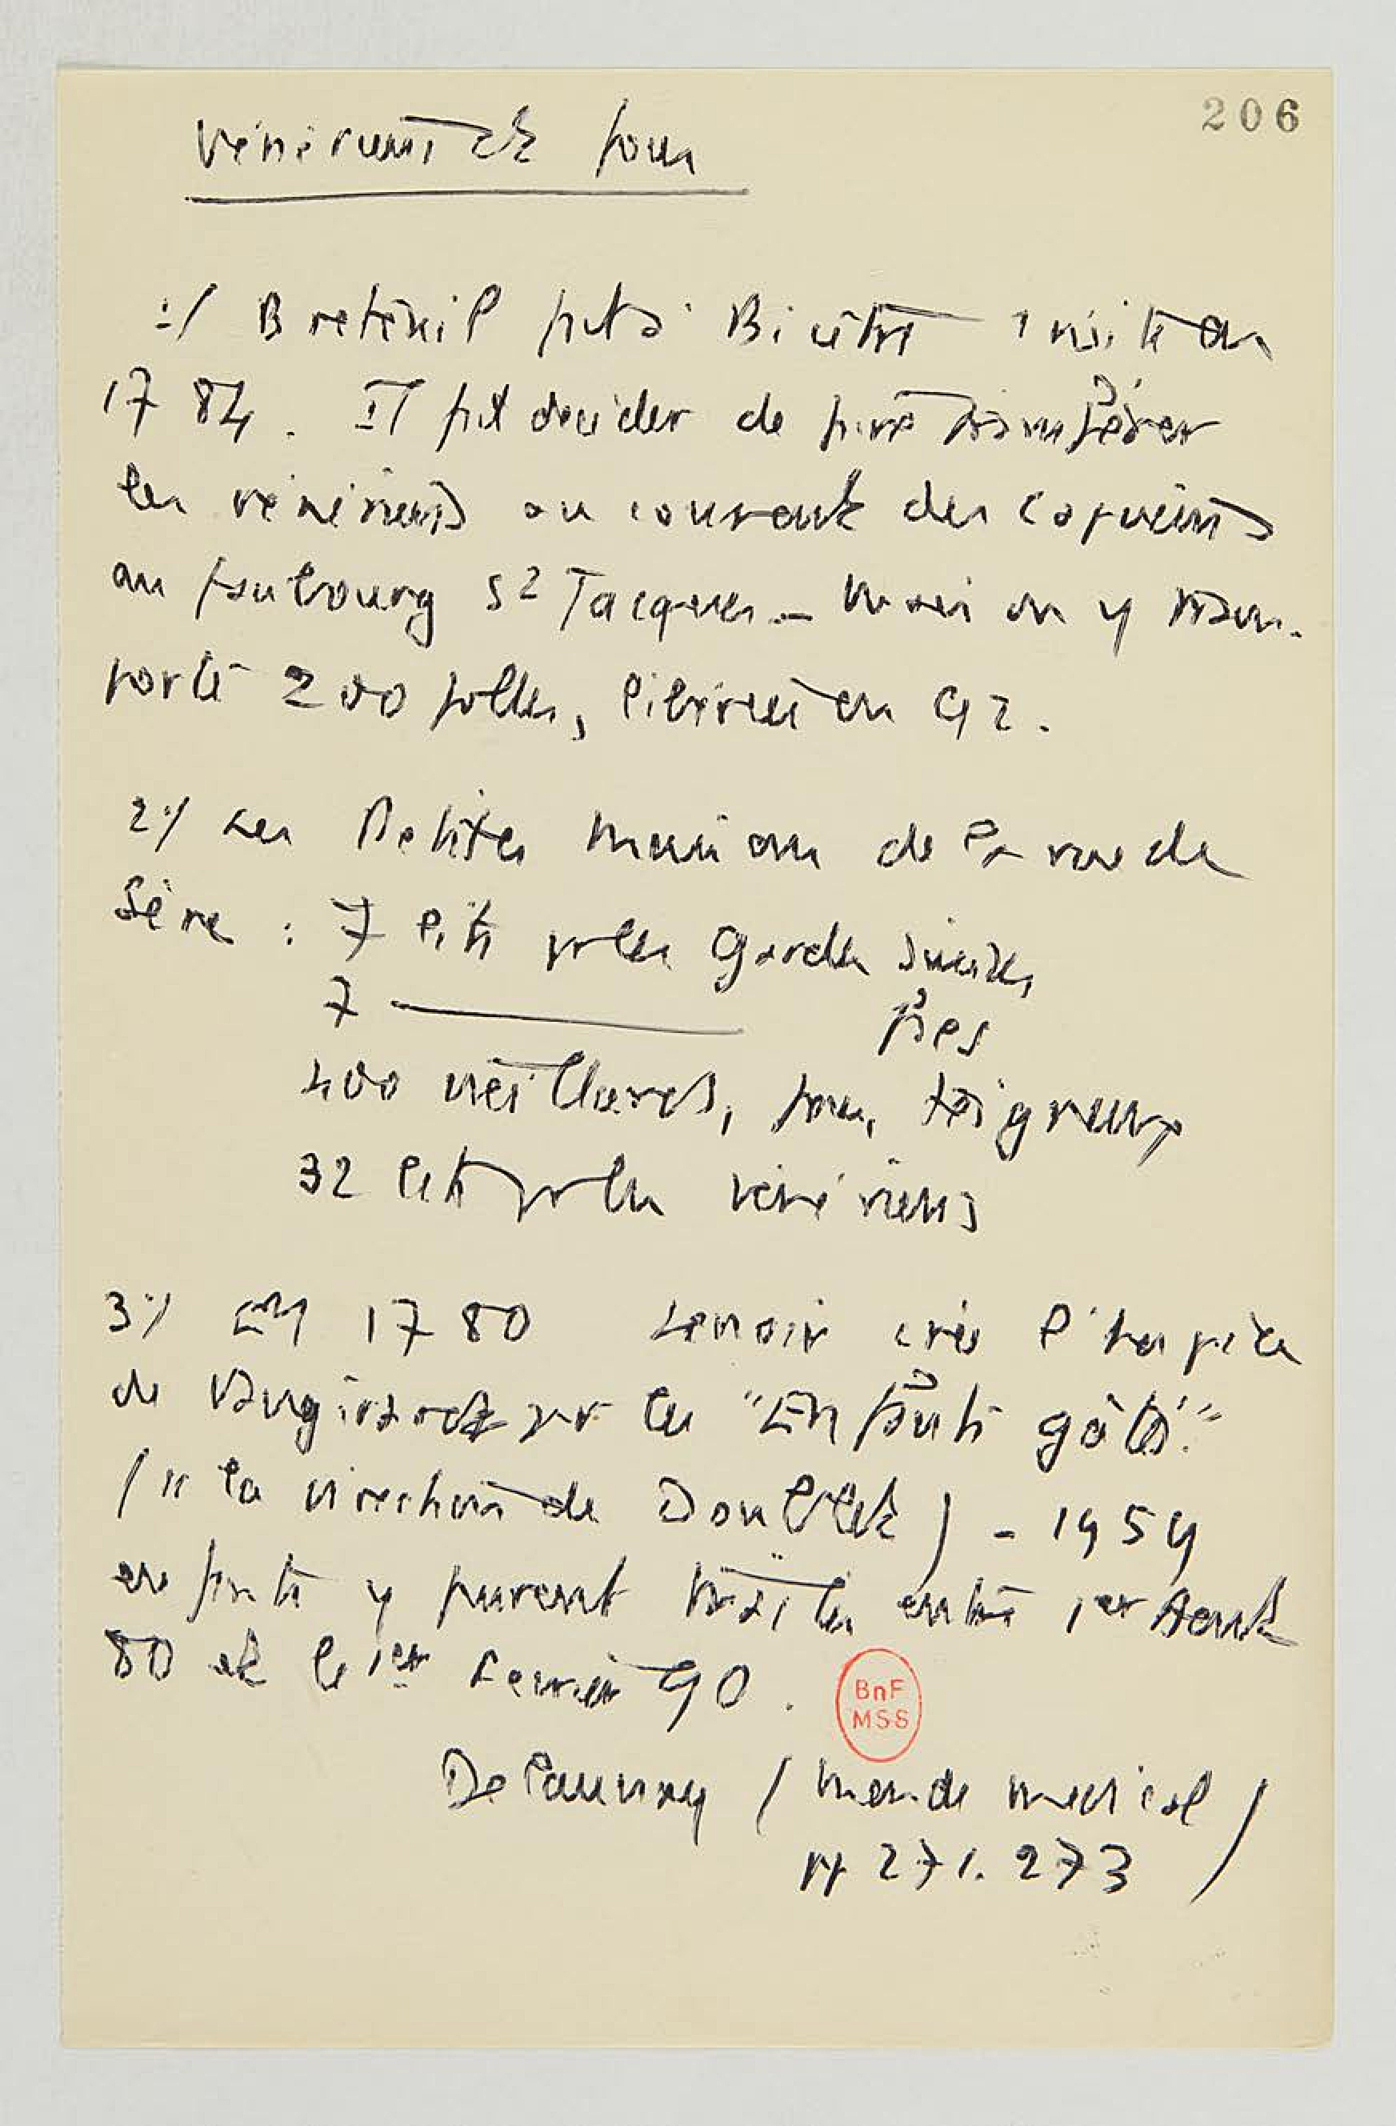 206
Vénériens et fous
1/ Breteuil fit à Bicêtre 1 visite en
1784. Il fit décider de faire transférer
les vénériens au couvent des Capucins
au faubourg St Jacques _ mais on y trans-
porte 200 folles, libérées en 92.
2°/ Les Petites Maisons de la rue de
Sèvres : 7 lits pr les Gardes suisses
7 ———— frçses
400 vieillards, fous, teigneux
32 lits pr les vénériens
3°/ En 1780 Lenoir crée l'hospice
de Vaugirard pr les "Enfants gâtés".
(ss la direction de Doublet) - 1959
enfants y furent traités entre 1er Aout
80 et le 1er Janvier 90.
BnF
MSS
Delaunay (Monde médical)
pp 271. 273